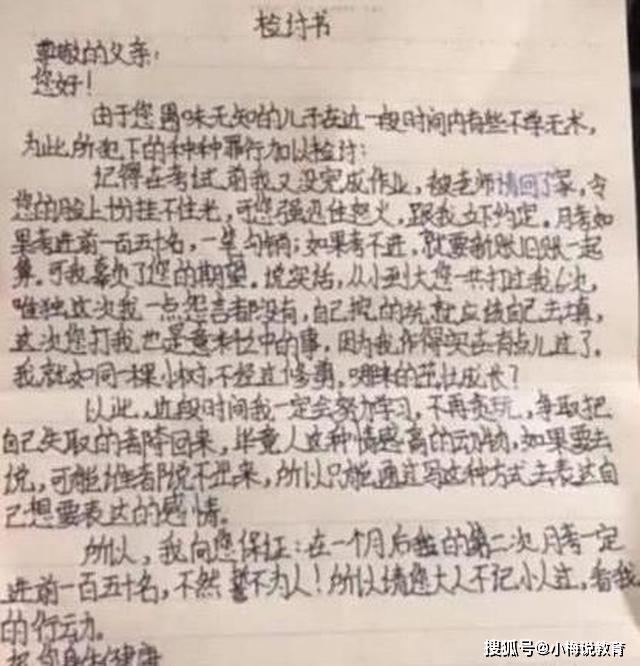 检讨书
尊敬的父亲：
您好！
由于您愚昧无知的儿子在这一段时间内有些不学无术，
为此所犯下的种种罪行加以检讨：
记得在考试前我又没完成作业，被老师请回了家，令
您的脸上恍挂不住光，可您强迅住怒火，跟我立下约定。月考如
果考进前一百五十名，一笔勾销；如果考不进，就要新账旧账一起
算。可我辜负了您的期望。说实话，从小到大您一共打过我6次，
唯独这次我一点怨言都没有，自己挖的坑就应该自己去填，
这次您打我也是意料之中的事，因为我作得实在有点儿过了。
我就如同一棵小树，不经过修剪，哪来的茁壮成长？
以此，这段时间我一定会努力学习，不再贪玩，争取把
自己失取的都夺回来，毕竟人这种情感高的动物，如果要去
说，可能谁都说不出来，所以只能通过写这种方式去表达自
己想要表达的感情。
所以，我向您保证：在一个月后的第二次月考一定
进前一百五十名，不然誓不为人！所以请您大人不记小人过，看我
的行动。
祝您身体健康
搜狐号@小梅说教育